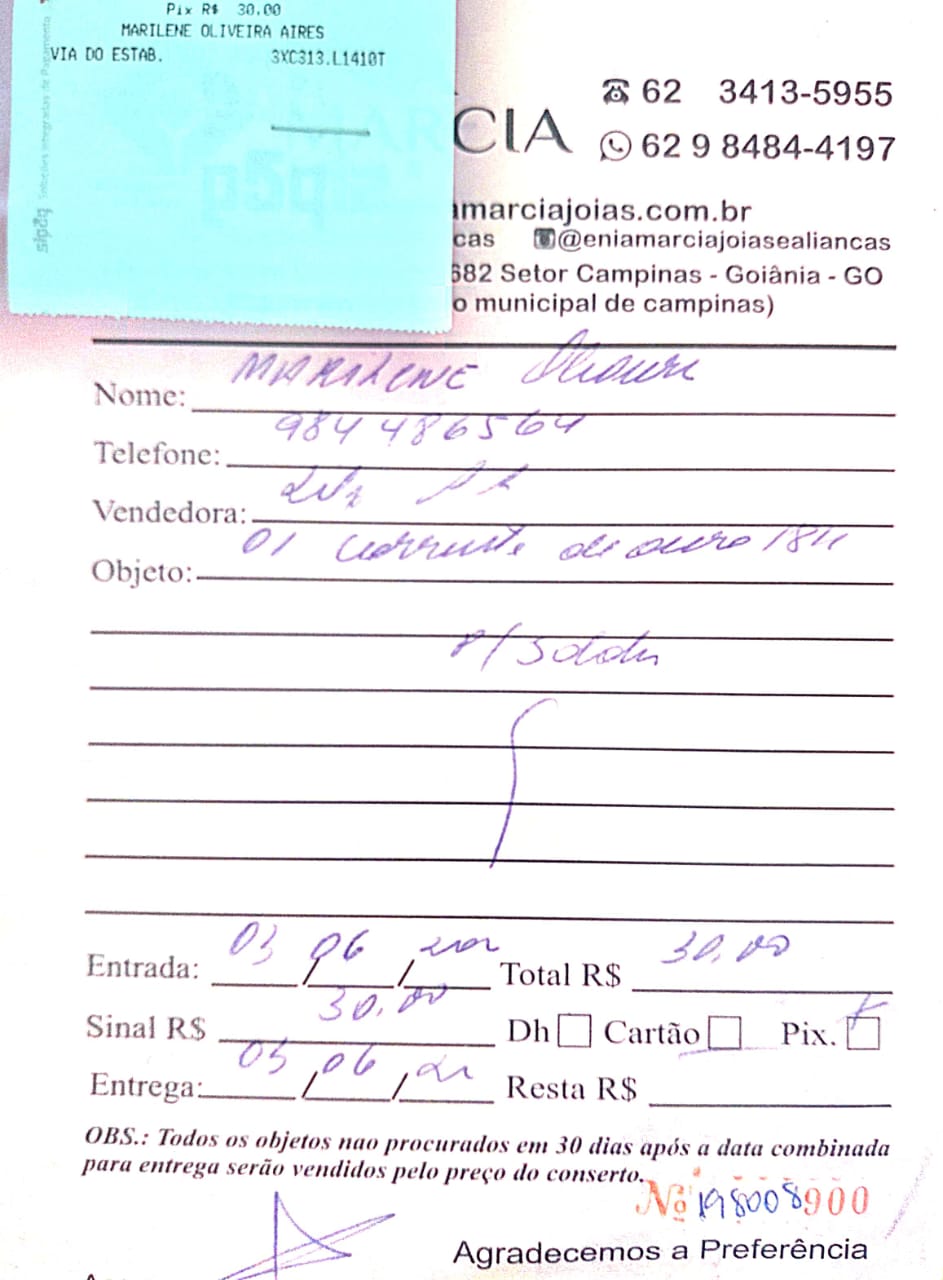 Pix R$ 30.00
MARILENE OLIVEIRA AIRES
VIA DO ESTAB. 3XC313.L1410T
Soluções integradas de Pagamento
sipag
CIA
62 3413-5955
62 9 8484-4197
amarciajoias.com.br
cas @eniamarciajoiasealiancas
682 Setor Campinas - Goiânia - GO
o municipal de campinas)
Nome: MARILENE
Telefone: 984486564
Vendedora:
Objeto: 01 corrente de ouro 18k
p/ soldar
Entrada: 03/06/ Total R$ 30,00
Sinal R$ 30,00 Dh Cartão Pix. X
Entrega: 05/06/ Resta R$
OBS.: Todos os objetos nao procurados em 30 dias após a data combinada
para entrega serão vendidos pelo preço do conserto.
Nº 900
Agradecemos a Preferência